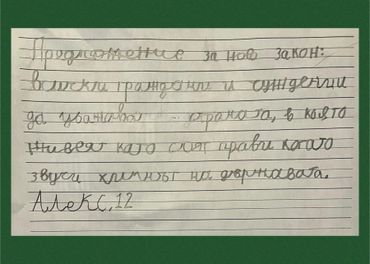 Предложение за нов закон:
всички граждани и
да уважават страната, в която
живеят като стят прави когато
звучи химнът на държавата.
Алекс, 12